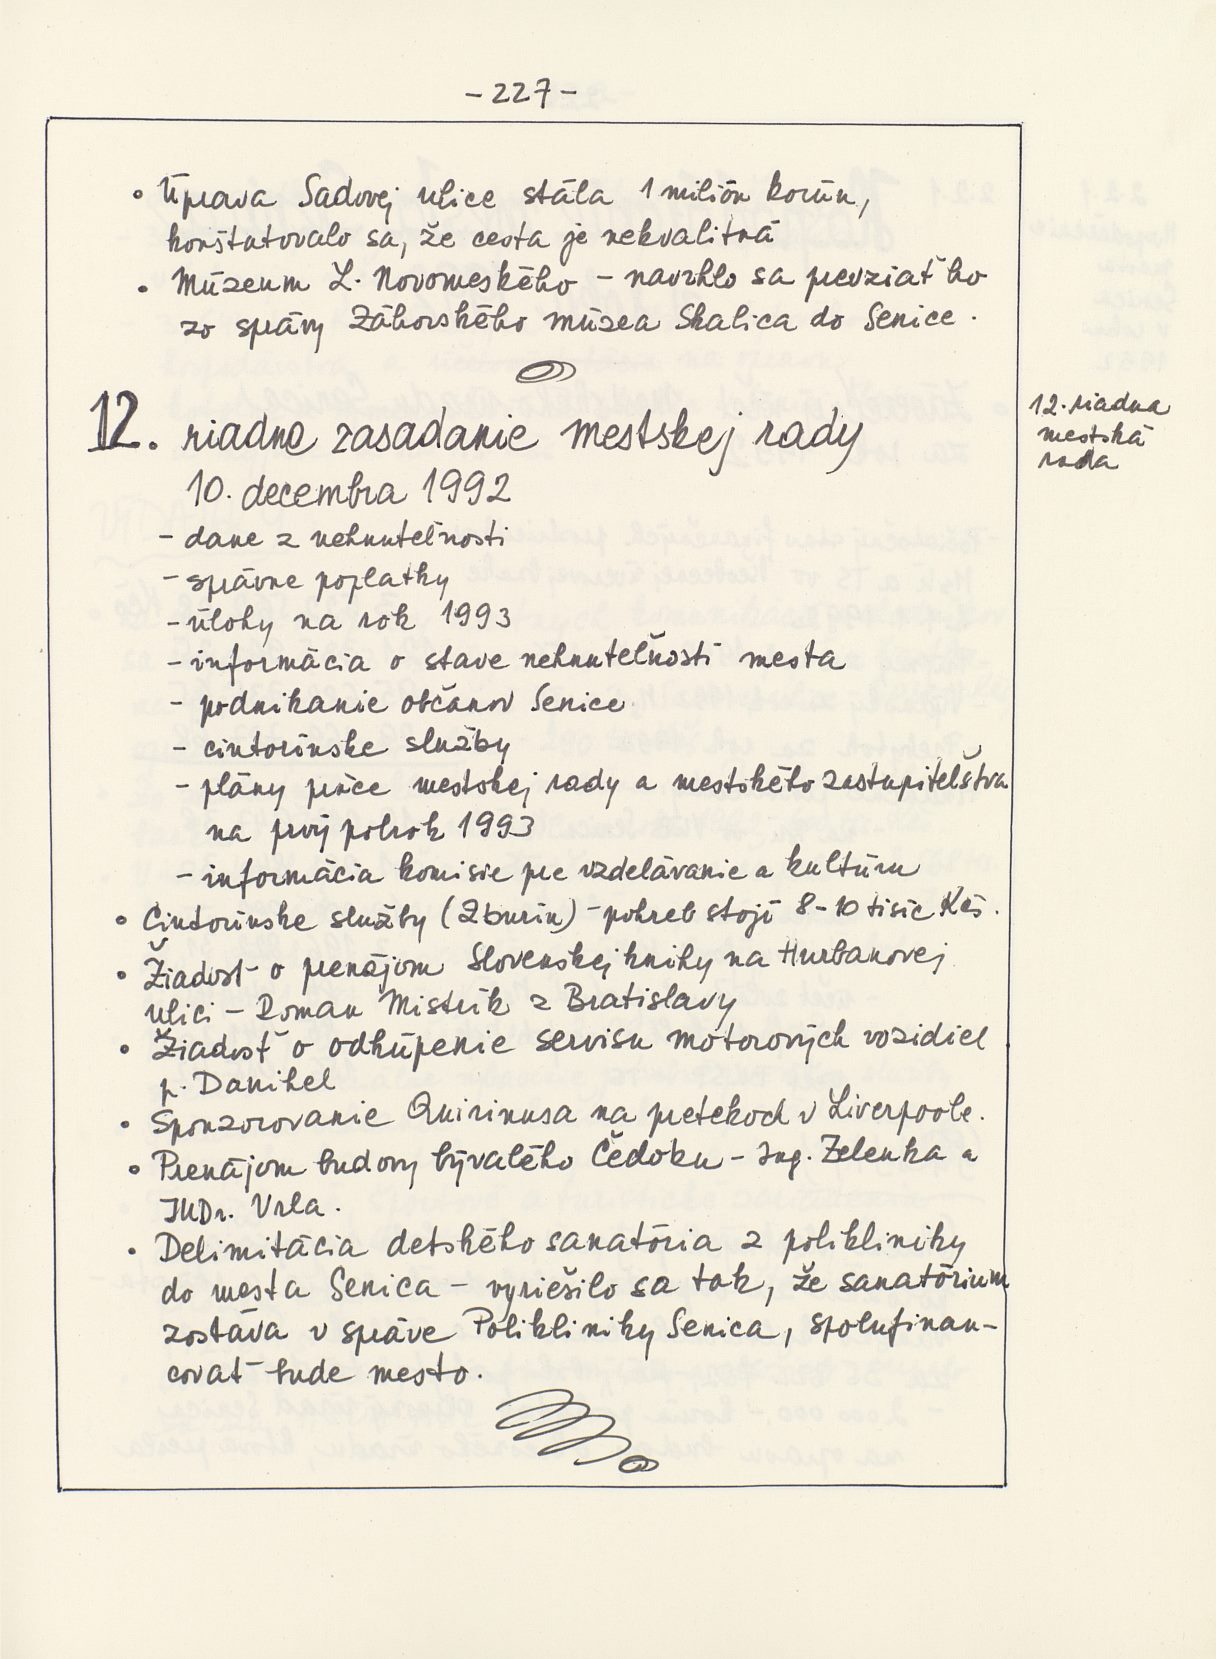 - 227 -
• Úprava Sadovej ulice stála 1 milión korún,
konštatovalo sa, že cesta je nekvalitná
• Múzeum L. Novomeského – navrhlo sa prevziať ho
zo správy Záhorského múzea Skalica do Senice.
12. riadne zasadanie mestskej rady
12. riadna
mestská
rada
10. decembra 1992
- dane z nehnuteľnosti
- správne poplatky
- úlohy na rok 1993
- informácia o stave nehnuteľností mesta
- podnikanie občanov Senice
- cintorínske služby
- plány práce mestskej rady a mestského zastupiteľstva
na prvý polrok 1993
- informácia komisie pre vzdelávanie a kultúru
• Cintorínske služby (Zburín) – pohreb stojí 8-10 tisíc Kčs.
• Žiadosť o prenájom Slovenskej knihy na Hurbanovej
ulici – Roman Mistrík z Bratislavy
• Žiadosť o odkúpenie servisu motorových vozidiel
p. Danihel
• Sponzorovanie Quirinusa na pretekoch v Liverpoole.
• Prenájom budovy bývalého Čedoku – Ing. Zelenka a
JUDr. Vrla.
• Delimitácia detského sanatória z polikliniky
do mesta Senica – vyriešilo sa tak, že sanatórium
zostáva v správe Polikliniky Senica, spolufinan-
covať bude mesto.